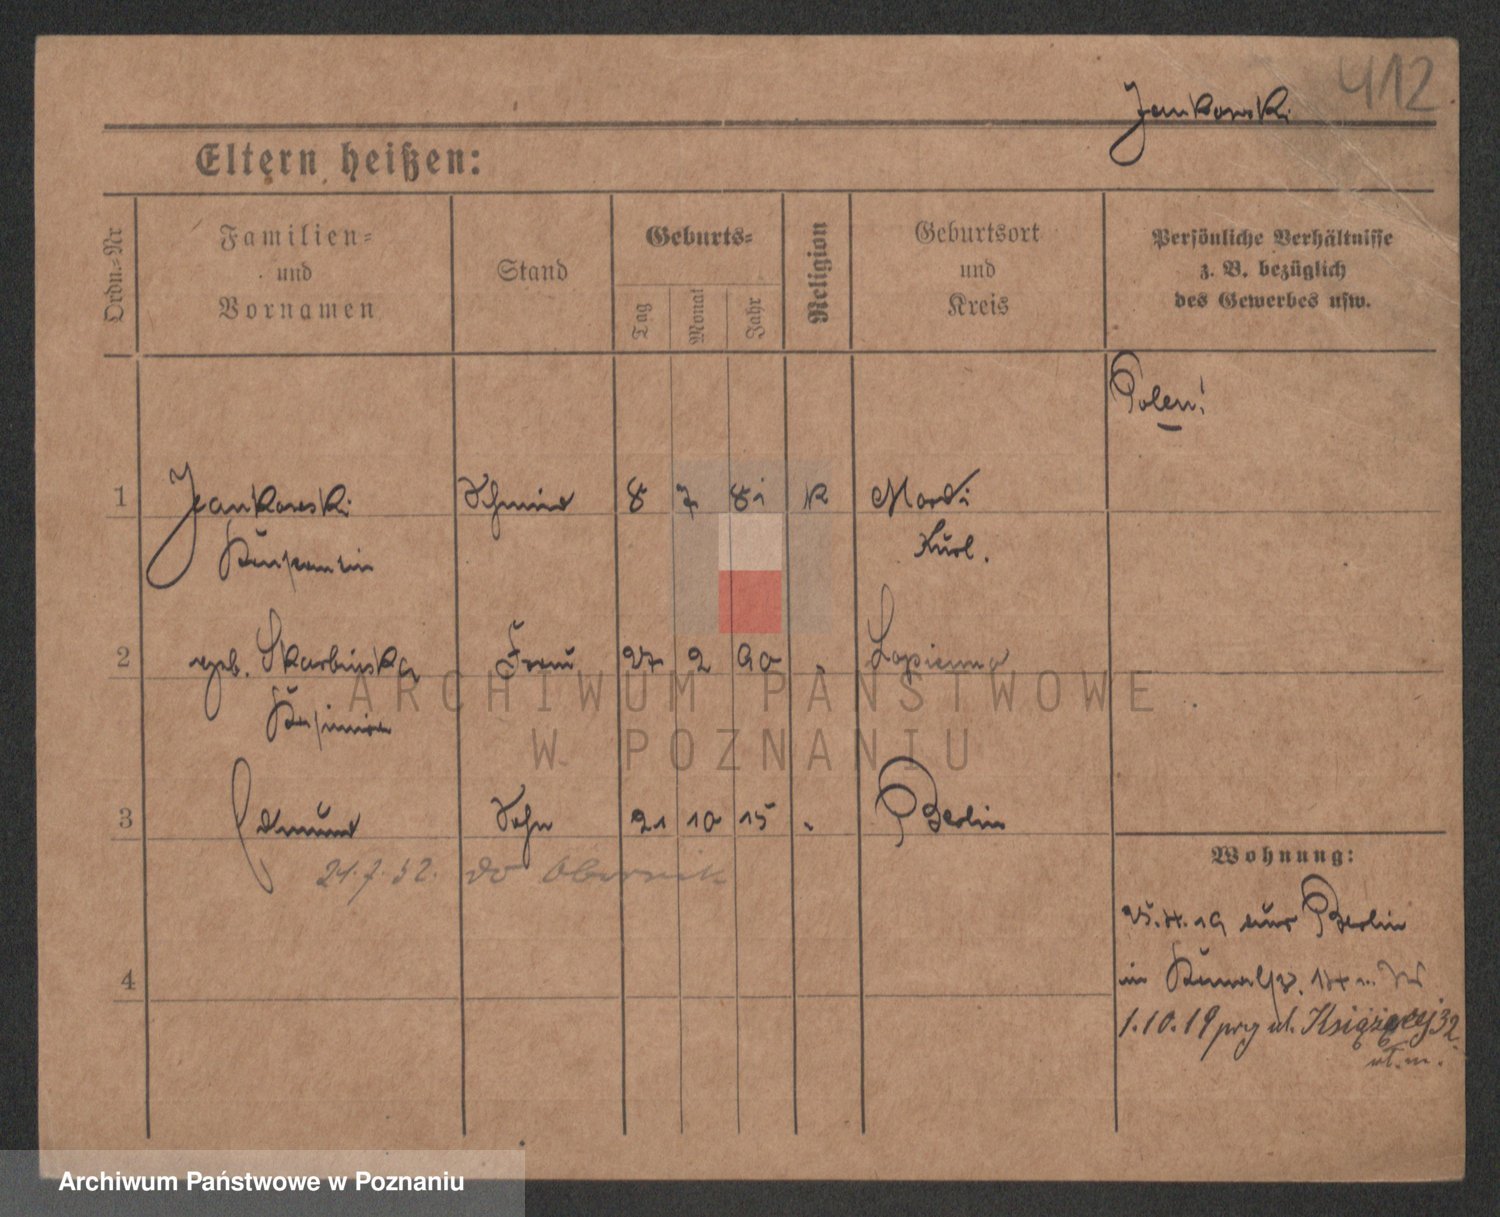 412
Jankowski
Eltern heißen:
Ordn.-Nr
Familien-
und
Vornamen
Stand
Geburts-
Tag
Monat
Jahr
Religion
Geburtsort
und
Kreis
Persönliche Verhältnisse
z. B. bezüglich
des Gewerbes usw.
Polen!
1 Jankowski Schmied 8 7 81 K
2 geb. Skarbinska Frau 27 2 90 Lopienno
Kasimira
3 Edmund Sohn 21 10 15 Berlin
21.7.32. do Obornik
4
Wohnung:
25.4.19 aus Berlin
1.10.19 przy ul. Książęcej 32
ARCHIWUM PAŃSTWOWE
W POZNANIU
Archiwum Państwowe w Poznaniu